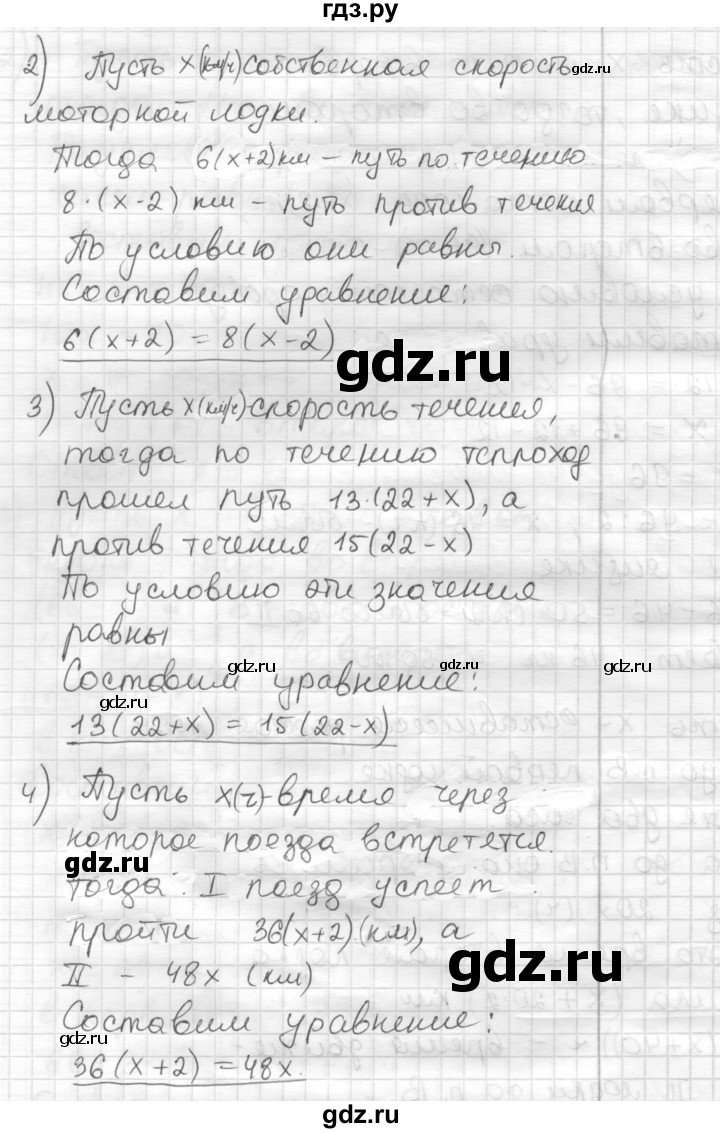 гдз.ру
2) Пусть х(км/ч) собственная скорость
моторной лодки.
Тогда 6(х+2)км – путь по течению
8·(х-2) км – путь против течения
По условию они равны.
Составим уравнение:
6(х+2) = 8(х-2)
gdz.ru
3) Пусть х(км/ч) скорость течения,
тогда по течению теплоход
прошел путь 13·(22+х), а
против течения 15(22-х)
По условию эти значения
равны
gdz.ru
gdz.ru
gdz.ru
Составим уравнение:
gdz.ru
13(22+х) = 15(22-х)
4) Пусть х(ч)-время через
которое поезда встретятся.
gdz.ru
тогда I поезд успеет
пройти 36(х+2)(км), а
II – 48х (км)
gdz.ru
Составим уравнение:
gdz.ru
gdz.ru
36(х+2) = 48х.
gdz.ru